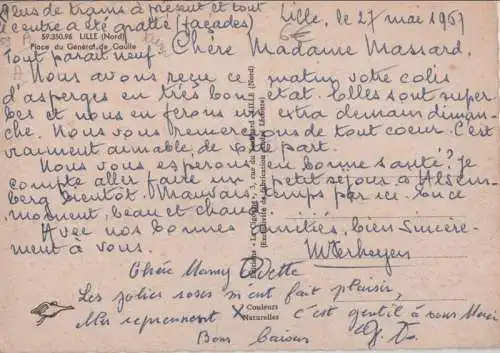 Plus de trams à présent et tout
le centre a été gratté (façades)
Tout paraît neuf.
59.350.96 LILLE (Nord)
Place du Général de Gaulle
Lille, le 27 mai 1967
6€
Chère Madame Massard.
Nous avons reçu ce matin votre colis
d'asperges en très bon état. Elles sont super-
bes et nous en ferons un extra demain diman-
che. Nous vous remercions de tout coeur. C'est
vraiment aimable de votre part.
Nous vous espérons en bonne santé? Je
compte aller faire un petit séjour à Alsem-
berg bientôt. Mauvais temps par ici. En ce
moment, beau et chaud.
Avec nos bonnes amitiés, bien sincère-
ment à vous.
Editions « La Cigogne », rue du LILLE (Nord)
(Exclusivité de fabrication Licence)
Chère Mamy Odette
Les jolies roses m'ont fait plaisir,
Mes reprennent c'est gentil à vous Merci
Bons baisers
Couleurs
Naturelles